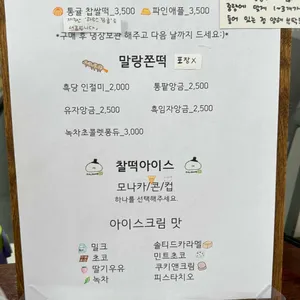 통귤 찹쌀떡_3,500 파인애플_3,500
*구매 후 냉장보관 해주고 다음 날까지 드세요:)*
말랑쫀떡 포장X
흑당 인절미_2,000 통팥앙금_2,500
유자앙금_2,500 흑임자앙금_2,500
녹차초콜렛퐁듀_3,000
찰떡아이스
모나카/콘/컵
하나를 선택해주세요.
아이스크림 맛
밀크 솔티드카라멜
초코 민트초코
딸기우유 쿠키앤크림
녹차 피스타치오